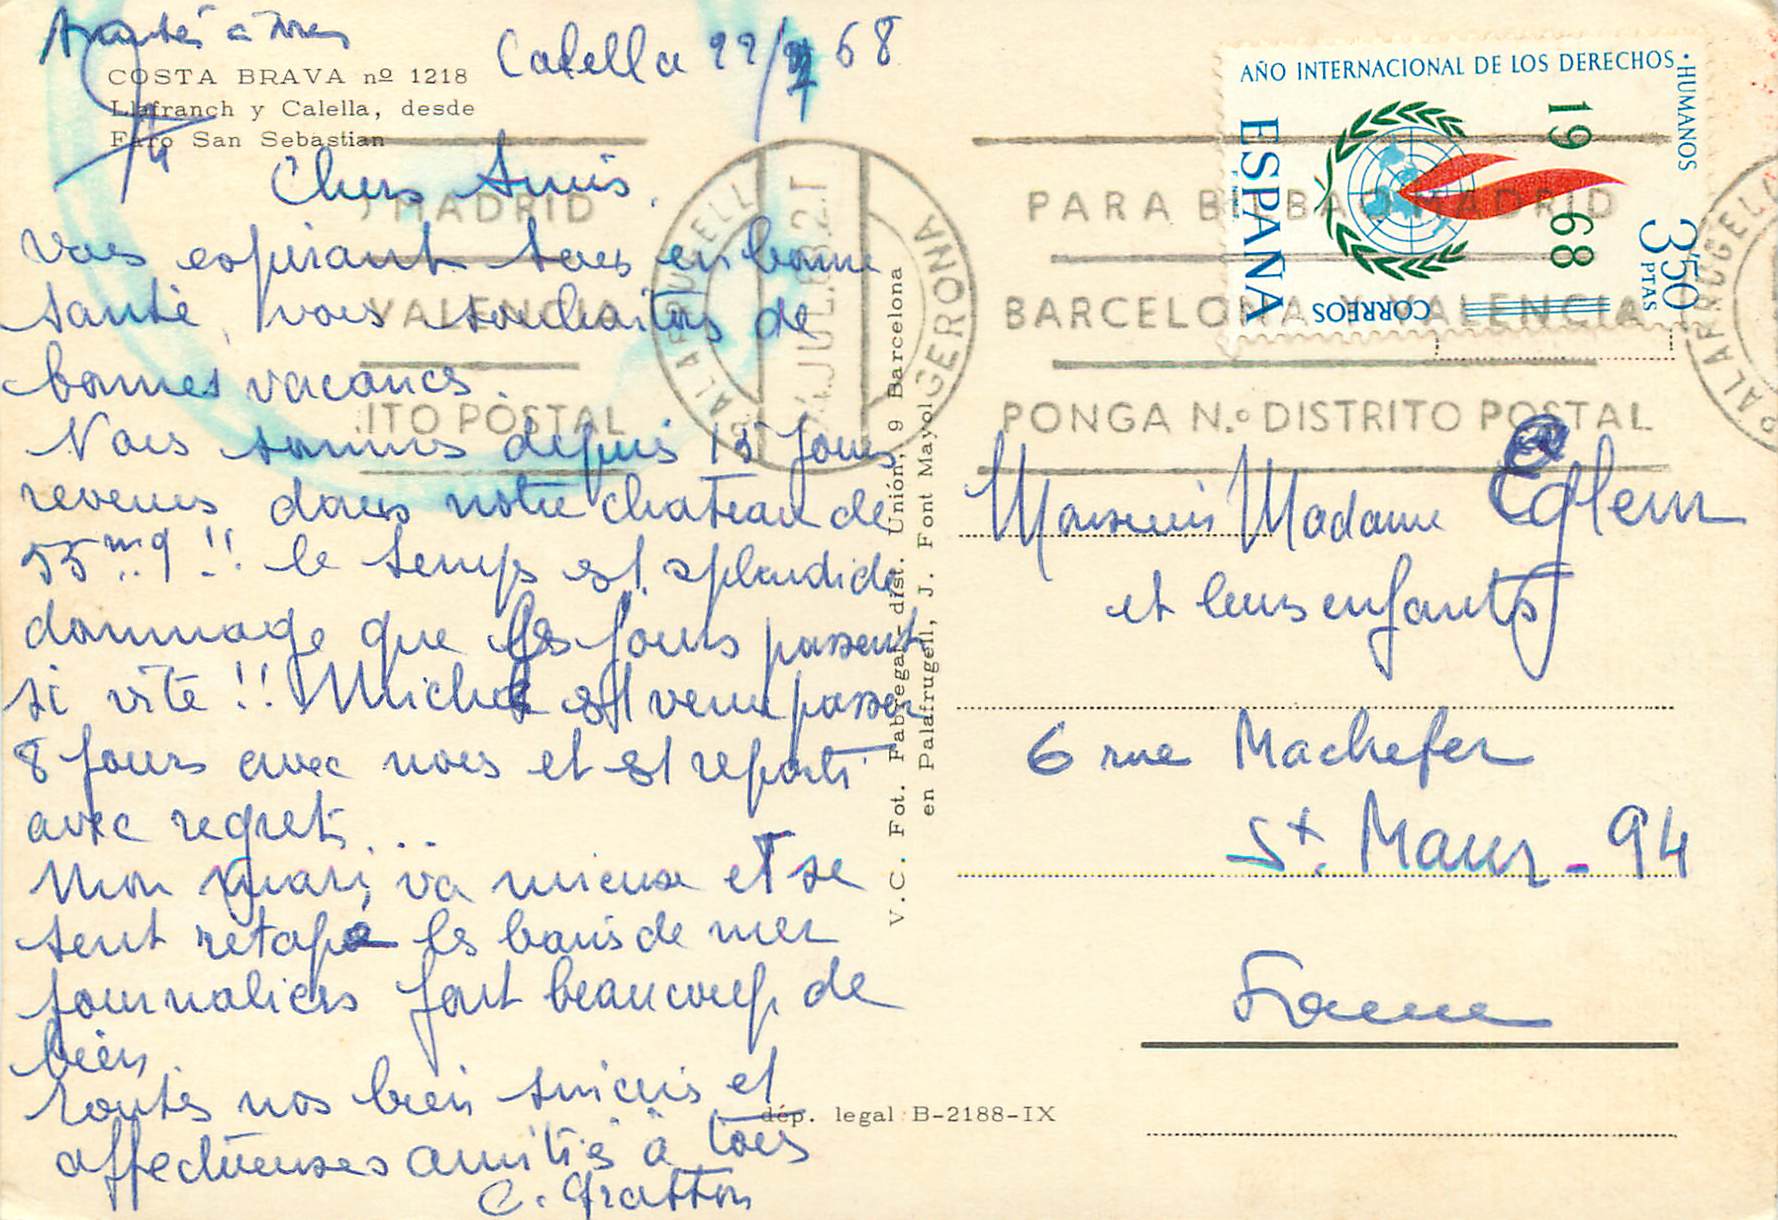 COSTA BRAVA nº 1218
Llafranch y Calella, desde
Faro San Sebastian
Calella 22/7 68
Chers Amis,
Vous espérant tous en bonne
santé, vous souhaitons de
bonnes vacances.
Nous sommes depuis 15 jours
revenus dans notre chateau de
55 mq !! le temps est splendide
dommage que les jours passent
si vite !! Michel est venu passer
8 jours avec nous et est reparti
avec regret...
Mon mari va mieux et se
sent retapé les bains de mer
journaliers font beaucoup de
bien.
Toutes nos bien sincères et
affectueuses amitiés à tous
C. Gratton
V.C. Fot. Fabregat - dist. Unión, 9 Barcelona
en Palafrugell, J. Font Mayol
dép. legal B-2188-IX
AÑO INTERNACIONAL DE LOS DERECHOS HUMANOS
1968
ESPAÑA
CORREOS
3'50 PTAS
MADRID
VALENCIA
ITO POSTAL
PALAFRUGELL
GERONA
PARA BILBAO MADRID
BARCELONA Y VALENCIA
PONGA N.º DISTRITO POSTAL
PALAFRUGELL
Monsieur Madame
et leurs enfants
6 rue Machefer
St. Maur - 94
France